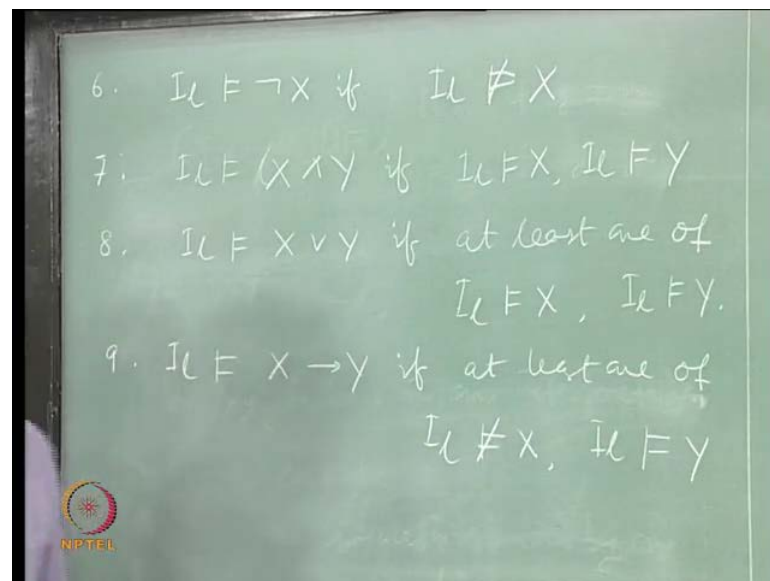 6. I_ℓ ⊨ ¬X if I_ℓ ⊭ X
7. I_ℓ ⊨ (X ∧ Y if I_ℓ ⊨ X, I_ℓ ⊨ Y
8. I_ℓ ⊨ X ∨ Y if at least one of
I_ℓ ⊨ X, I_ℓ ⊨ Y.
9. I_ℓ ⊨ X → Y if at least one of
I_ℓ ⊭ X, I_ℓ ⊨ Y
NPTEL